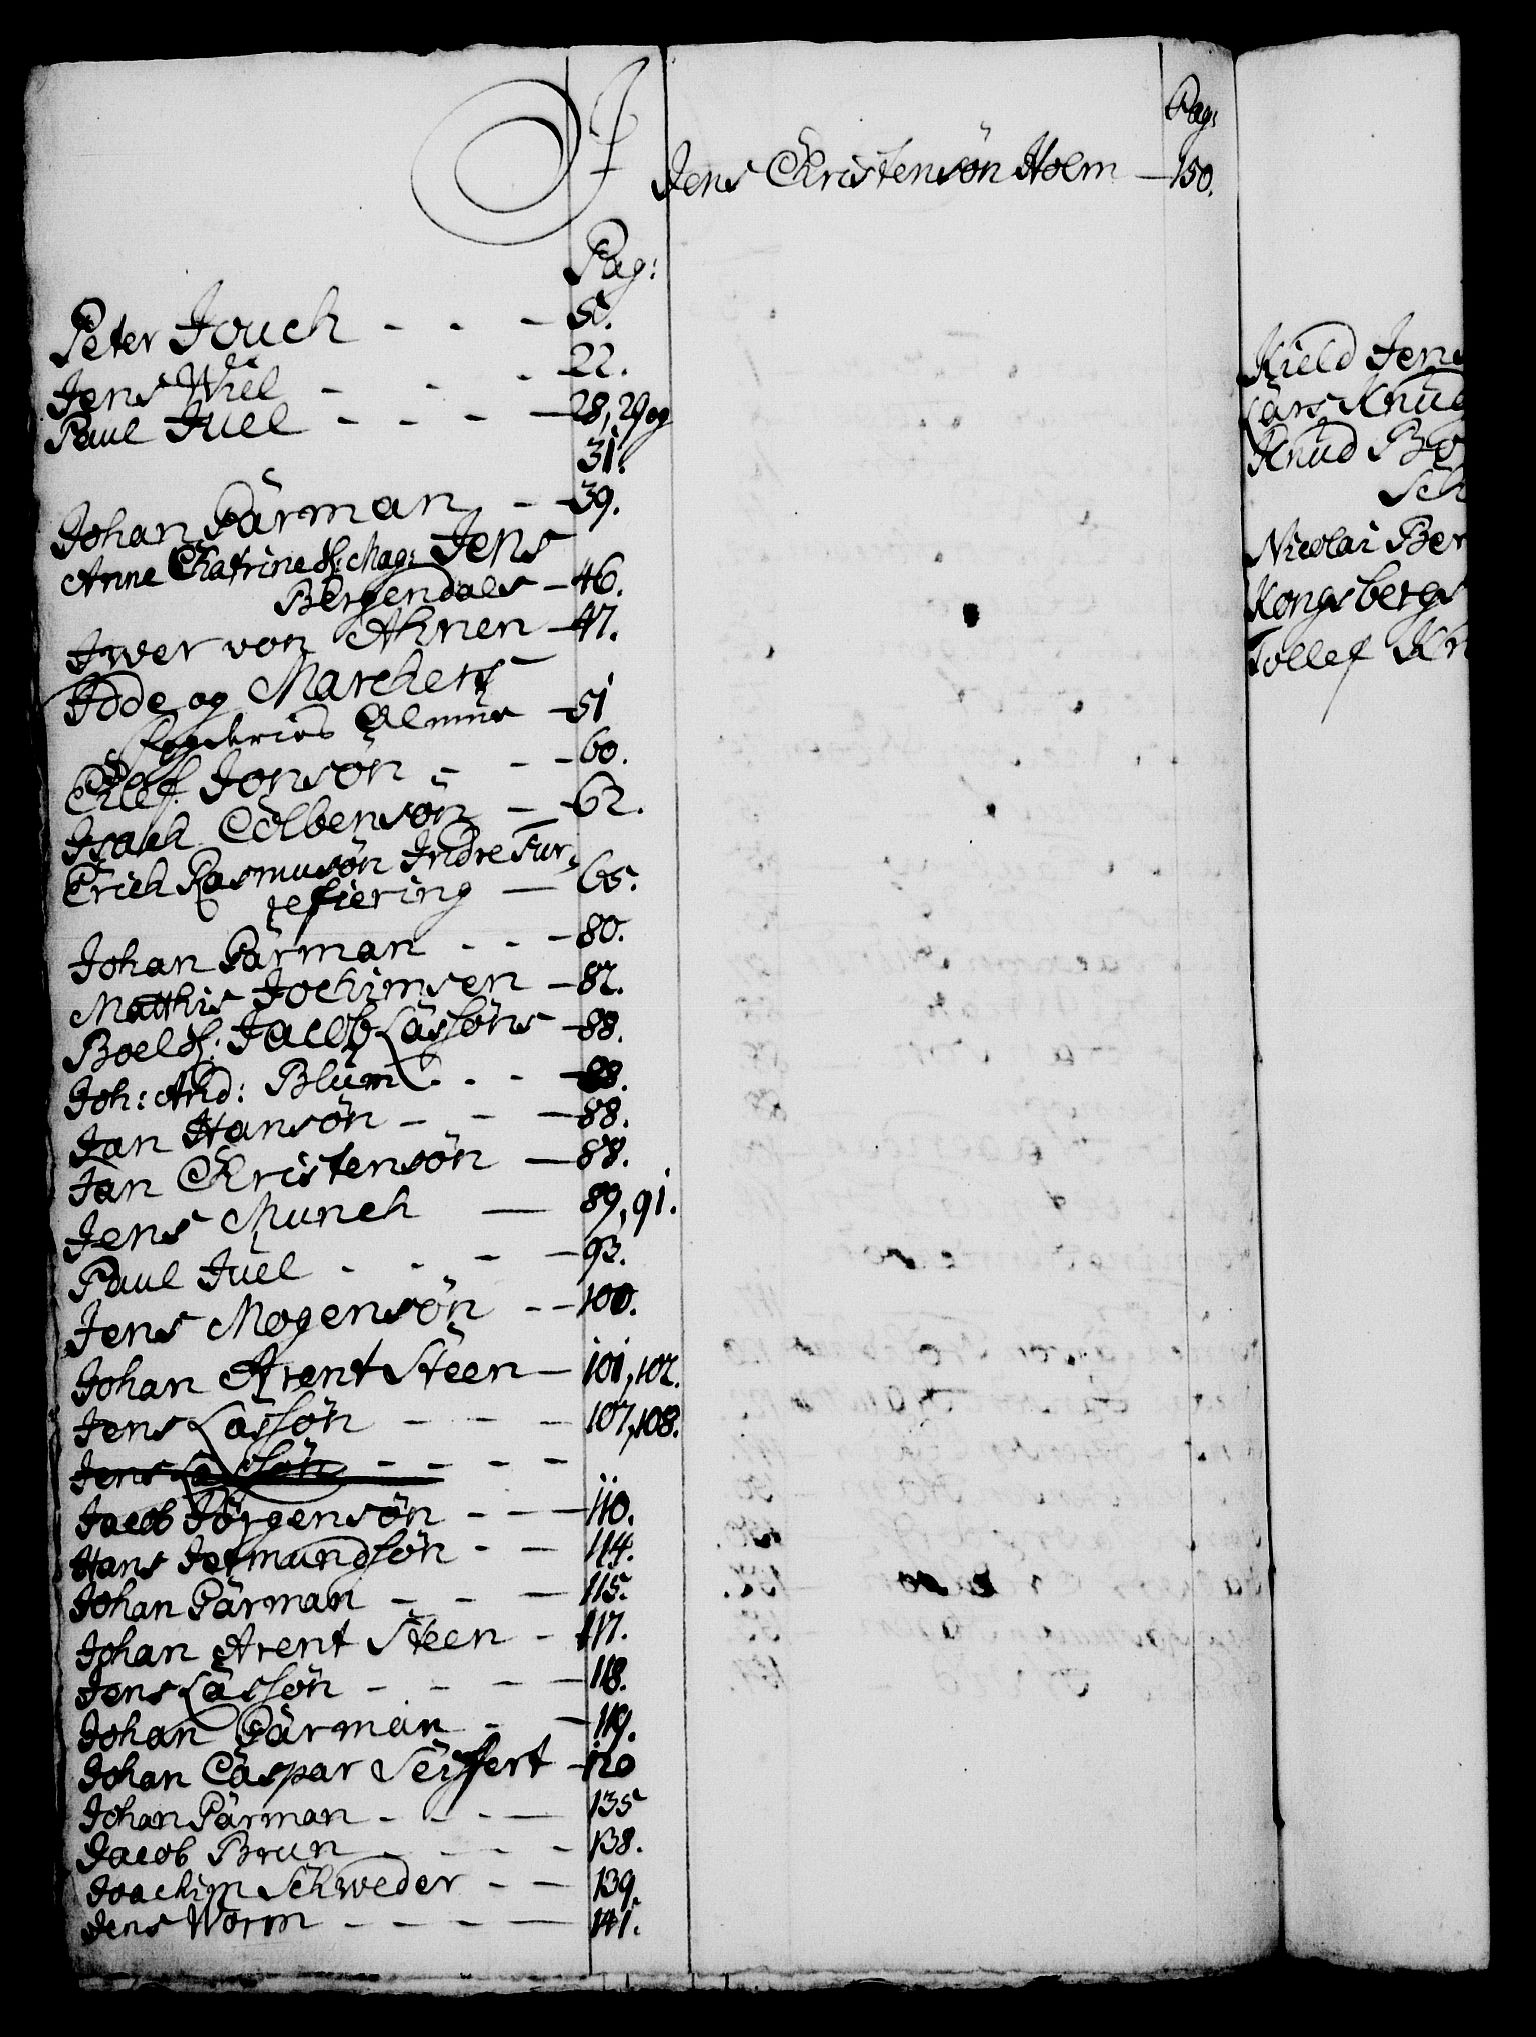 J
Pag:
Peter Jouch - - - 50.
Jens Wiel - - - 22.
Paul Juel - - - - 28, 29 og
31.
Johan Pärman - - 39.
Anne Chatrine Sl: Mag: Jens
Bergendals - 46.
Iwer von Ahnen - 47.
Idde og Marckers
Fogderies Almue - 51
Ellef Jonsøn - - - 60.
Isach Colbensøn - - 62.
Erich Rasmusøn Indre Sur,
refiering - 65.
Johan Pärman - - - 80.
Matthis Jochimsen - 82.
Boel Sl: Jacob Lassøns - 88.
Joh: And: Blum - - - 88.
Jan Hansøn - - - 88.
Jan Christensøn - 88.
Jens Munch - 89, 91.
Paul Juel - - - - 93.
Jens Mogensøn - - 100.
Johan Arent Steen - 101, 102.
Jens Lassøn - - - 107, 108.
Jens Lassøn - - - -
Jacob Jørgensøn - - - 110.
Hans Jermundsøn - - 114.
Johan Pärman - - - 115.
Johan Arent Steen - 117.
Jens Lassøn - - - - 118.
Johan Pärman - - 119.
Johan Caspar Seiffert - 120
Johan Pärman - - - - 135
Jacob Brun - - - - 138.
Joachim Schweder - - 139
Jens Worm - - - - 141.
Pag:
Jens Christensøn Holm - 150.
Kield Jens
Lars Knud
Knud Bo
Sch
Nicolai Ber
Kongsbergs
Tollef Kn